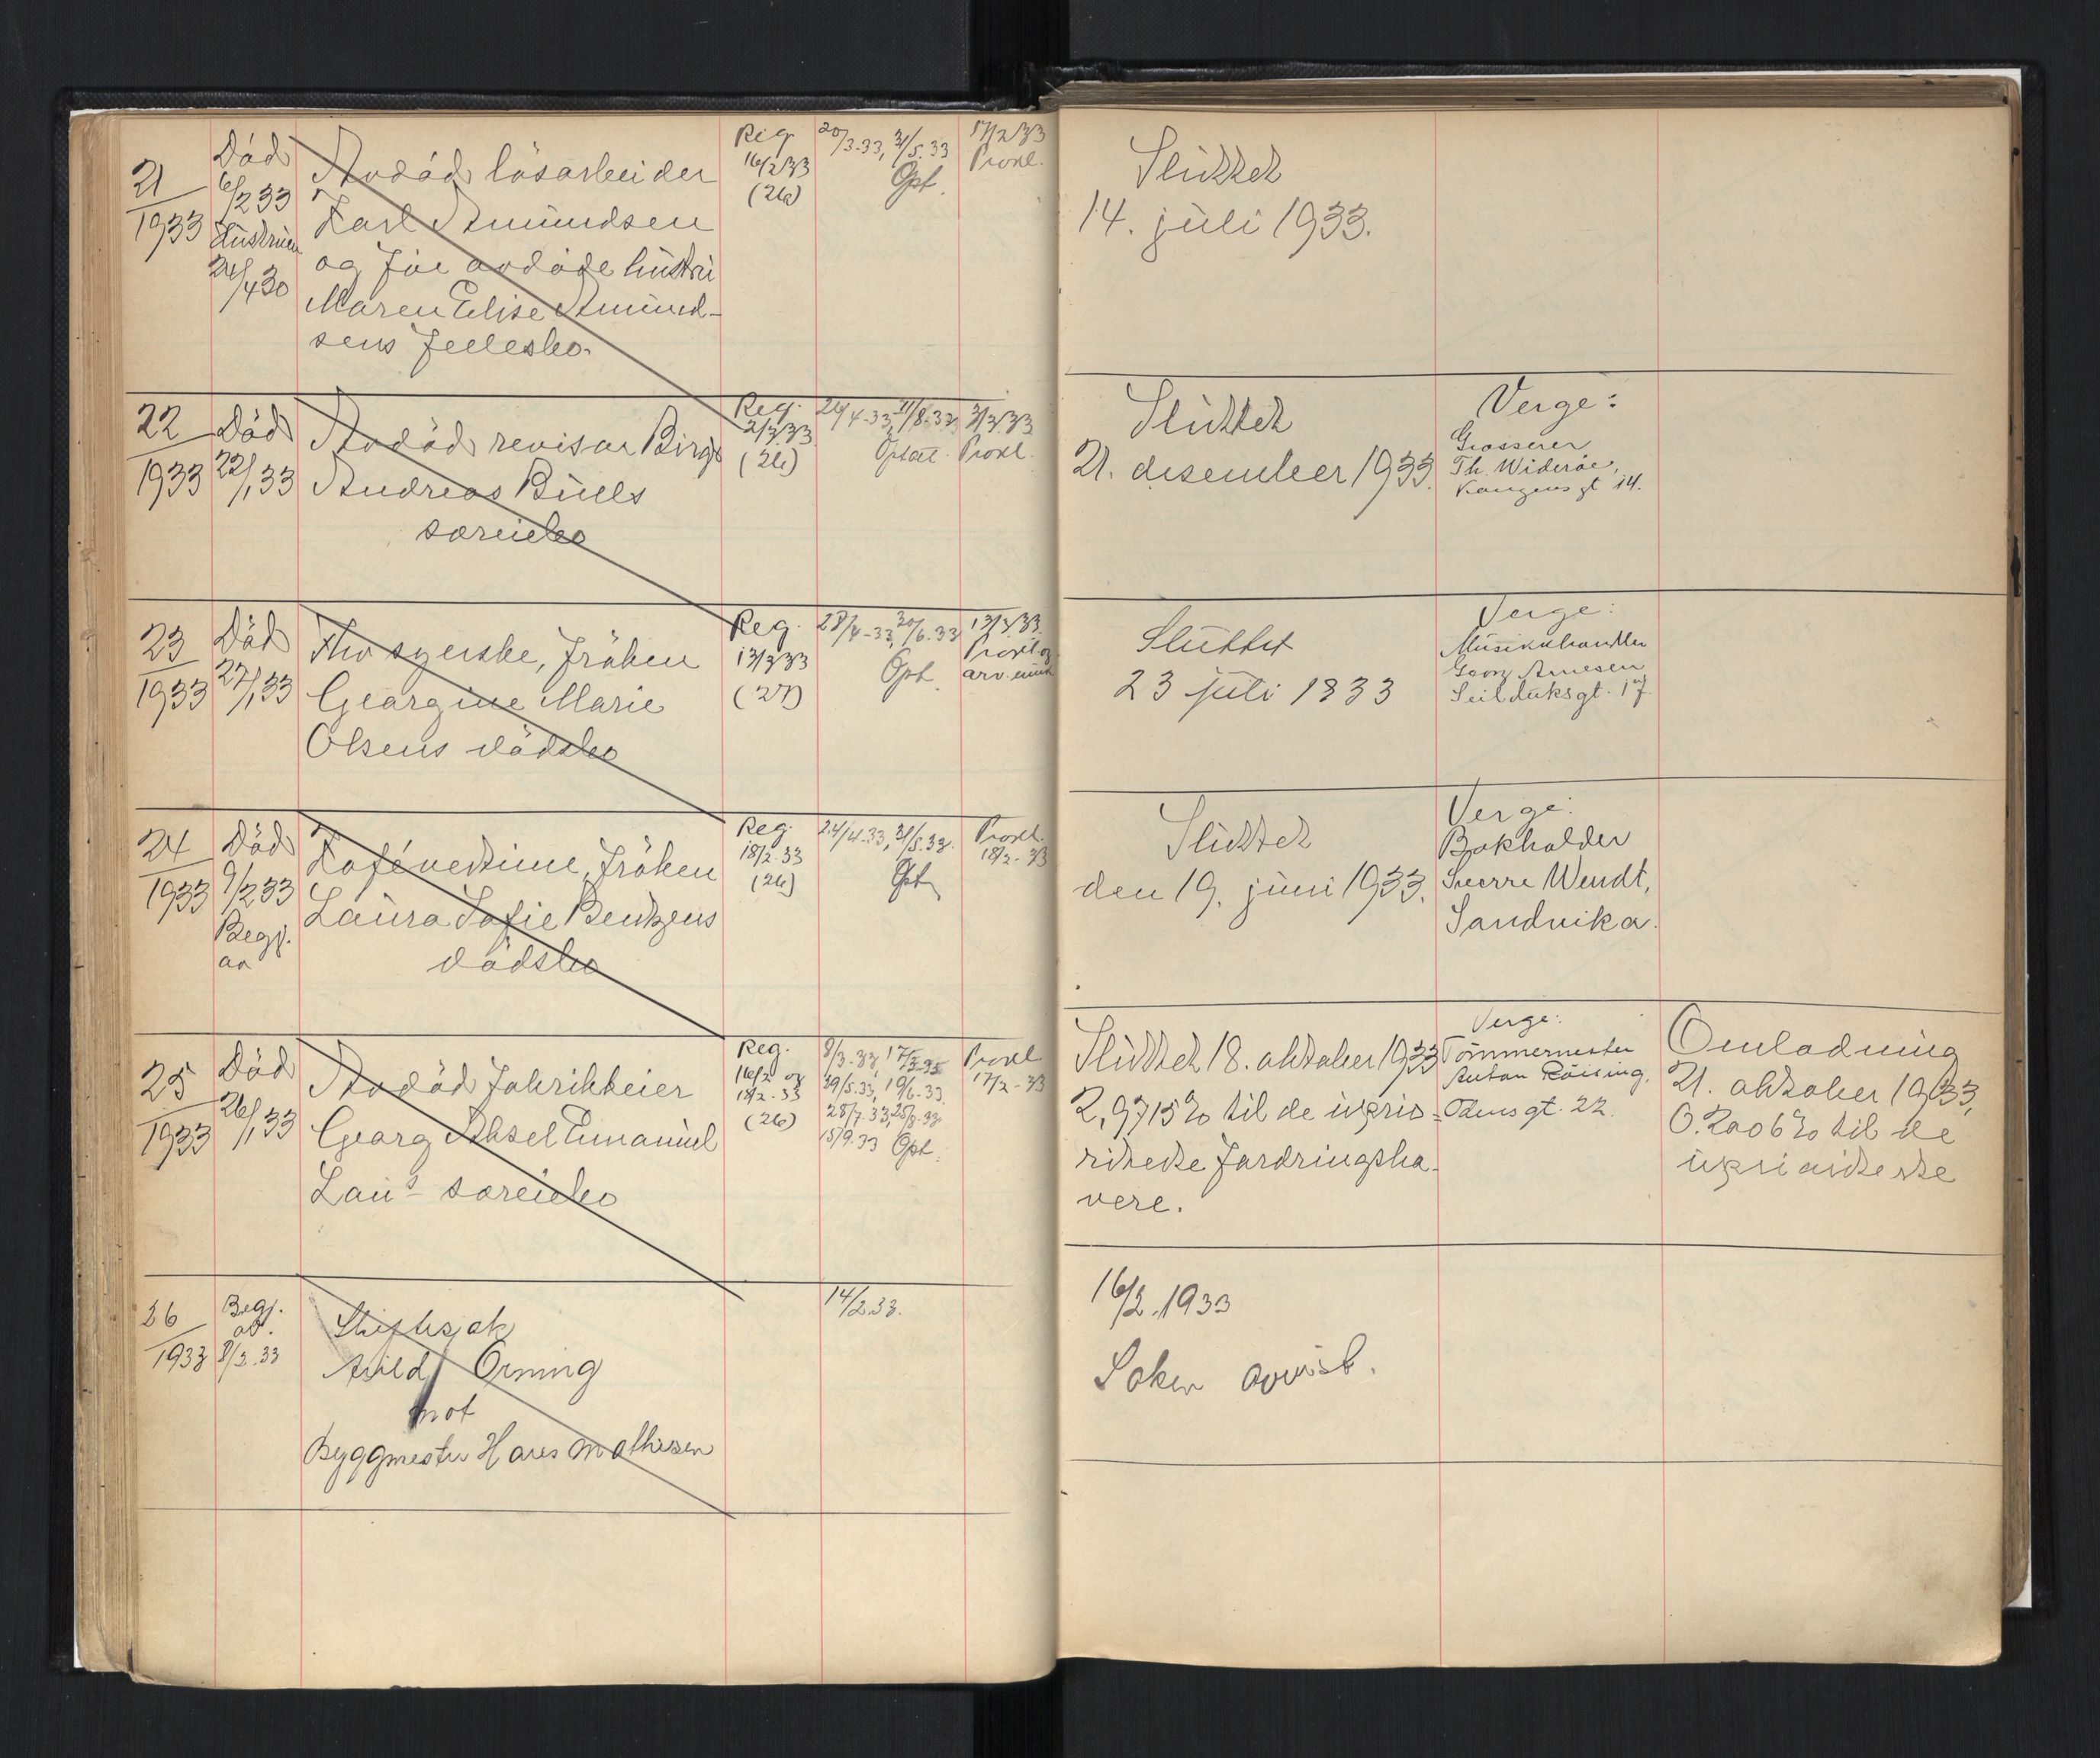 21
1933
Död
6/2 33
Hustruen
24/4 30
Avdöd lösarbeider
Karl Amundsen
og för avdöde hustru
Maren Elise Amund-
sens fellesbo.
Reg.
16/2 33
(26)
20/3-33, 31/5.33
Opt.
17/2 33
Prokl.
Sluttet
14. juli 1933.
22
1933
Död
22/1 33
Avdöd revisor Birger
Andreas Bulls
særeiebo
Reg.
2/3 33
(26)
24/4-33, 11/8-33
Opt
3/3 33
Prokl.
Sluttet
21. desember 1933.
Verge:
Grosserer
Th. Wideröe,
Kongens gt 14.
23
1933
Död
27/1 33
Fhv syerske, fröken
Georgine Marie
Olsens dödsbo
Reg.
13/3 33
(27)
28/4-33, 20/6.33
Opt.
13/3 33
Prokl. og
arv. innk
Sluttet
23 juli 1933
Verge:
Musikkhandler
Georg Arnesen
Seilduksgt. 17
24
1933
Död
9/2 33
Begj.
av
Kafévertinne, fröken
Laura Sofie Bentzens
dödsbo
Reg.
18/2.33
(26)
24/4.33, 31/5.33.
Opt
Prokl.
18/2-33
Sluttet
den 19. juni 1933.
Verge:
Bokholder
Sverre Wendt,
Sandvika.
25
1933
Död
26/1 33
Avdöd fabrikkeier
Georg Aksel Emanuel
Lau's særeiebo
Reg.
16/2 og
18/2-33
(26)
8/3-33, 17/3 33
29/5.33, 19/6-33.
28/7.33, 25/8-33
15/9.33 Opt.
Prokl
17/2-33
Sluttet 18. oktober 1933
2,9715% til de uprio-
riterte fordringsha-
vere.
Verge:
Tömmermester
Anton Röising,
Odensgt. 22.
Omladning
21. oktober 1933,
0.2006% til de
upriorterte
26
1933
Begj.
av.
8/2.33
Skiftesjak
Arild Orning
mot
Byggmester Hans Mathisen
14/2 33.
16/2.1933
Saken avvist.